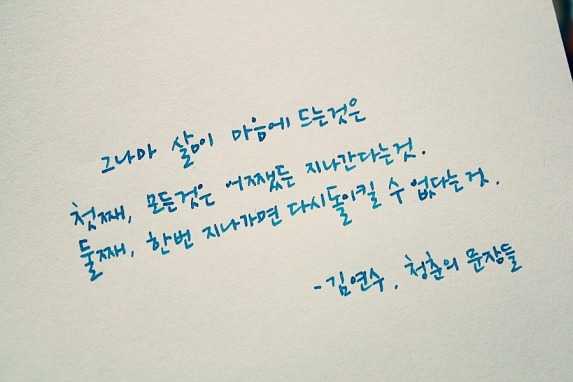 그나마 삶이 마음에 드는것은
첫째, 모든것은 어쨌든 지나간다는것.
둘째, 한번 지나가면 다시돌이킬 수 없다는것.
-김연수, 청춘의 문장들